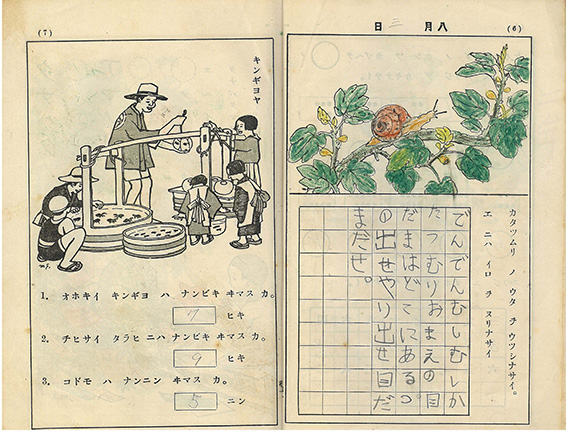 (6)
八月 三 日
カタツムリ ノ ウタ ヲ ウツシナサイ。
エ ニハ イロ ヲ ヌリナサイ
でんでんむしむしか
たつむりおまえの目
だまはどこにあるつ
の出せやり出せ目だ
まだせ。
(7)
キンギヨヤ
1. オホキイ キンギヨ ハ ナンビキ ヰマス カ。
7 ヒキ
2. チヒサイ タラヒ ニハ ナンビキ ヰマス カ。
9 ヒキ
3. コドモ ハ ナンニン ヰマス カ。
5 ニン